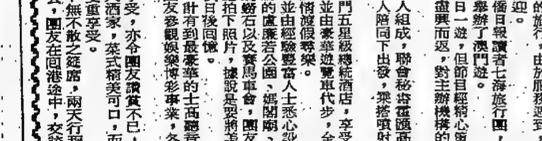 旅行，由於服務遇到
迎。
僑日報讀者七海旅行團，
舉辦了澳門遊。
日一遊，但節目經精心策
盡興而返，對主辦機構的
人組成，聯會秘書霍漢高
人陪同下出發，乘搭噴射
門五星級總統酒店，享受
並由豪華遊覽車代步，全
情渡假尋樂。
並由經驗豐富人士悉心設
的盧廉若公園、媽閣廟、
礮石以及賽馬車會，團友
拍下照片，據說是要將美
日後回憶。
計有到最豪華的士高聽音
友參觀娛樂博彩事業，各
受，亦令團友讚賞不已，
酒家，菜式精美可口，而
重享受。
無不散之筵席，兩天行程
，團友在回港途中，交談